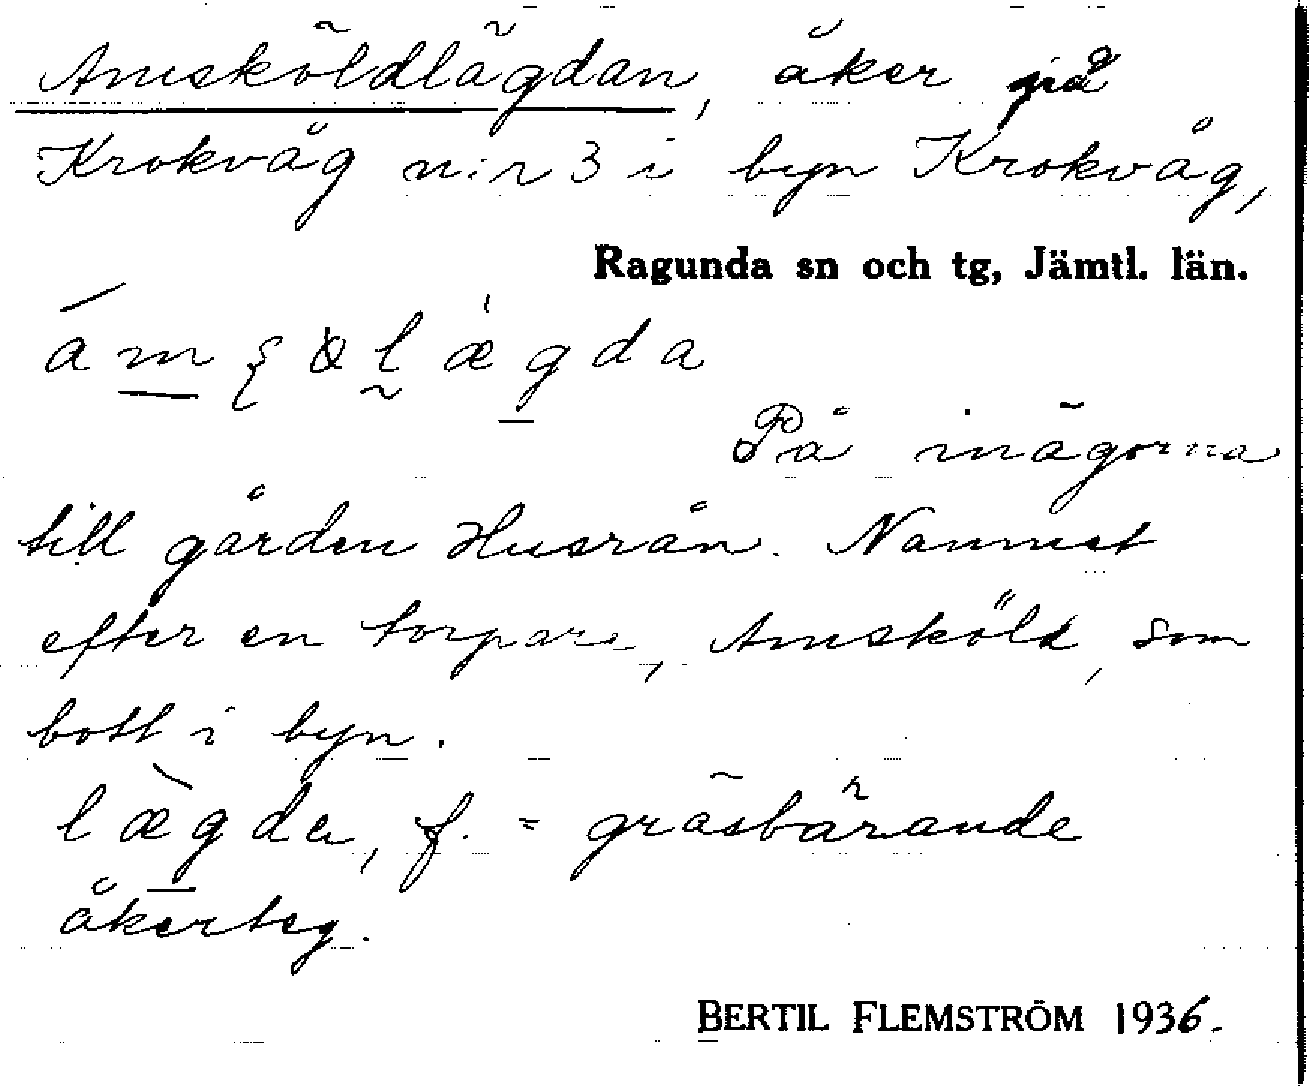 Amsköldlägdan, åker på
Krokvåg n:r 3 i byn Krokvåg,
Ragunda sn och tg, Jämtl. län.
lægda
På inägorna
till gården Husrån. Namnet
efter en torpare, Amsköld, som
bott i byn.
lægda, f. = gräsbärande
åkerteg.
BERTIL FLEMSTRÖM 1936.